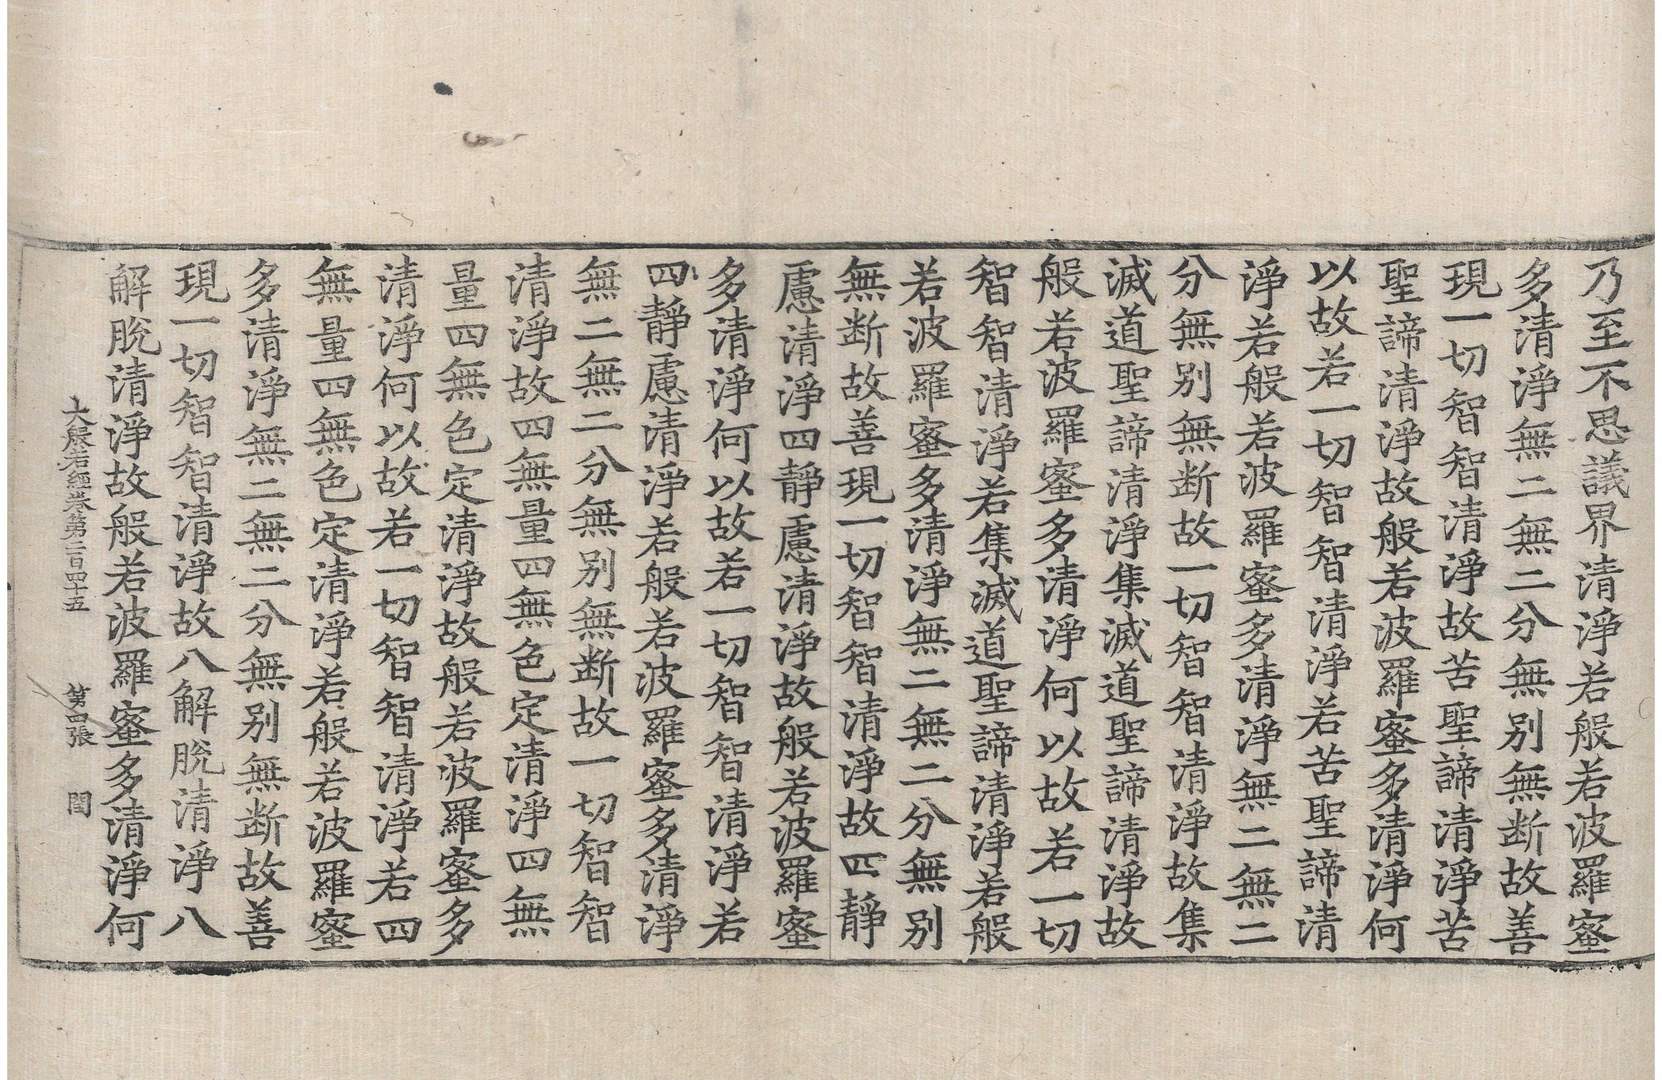 乃至不思議界清淨若般若波羅蜜
多清淨無二無二分無別無断故善
現一切智智清淨故苦聖諦清淨苦
聖諦清淨故般若波羅蜜多清淨何
以故若一切智智清淨若苦聖諦清
淨若般若波羅蜜多清淨無二無二
分無別無断故一切智智清淨故集
滅道聖諦清淨集滅道聖諦清淨故
般若波羅蜜多清淨何以故若一切
智智清淨若集滅道聖諦清淨若般
若波羅蜜多清淨無二無二分無別
無断故善現一切智智清淨故四静
慮清淨四静慮清淨故般若波羅蜜
多清淨何以故若一切智智清淨若
四静慮清淨若般若波羅蜜多清淨
無二無二分無別無断故一切智智
清淨故四無量四無色定清淨四無
量四無色定清淨故般若波羅蜜多
清淨何以故若一切智智清淨若四
無量四無色定清淨若般若波羅蜜
多清淨無二無二分無別無断故善
現一切智智清淨故八解脫清淨八
解脫清淨故般若波羅蜜多清淨何
大般若經卷第二百四十五 第四張 閏